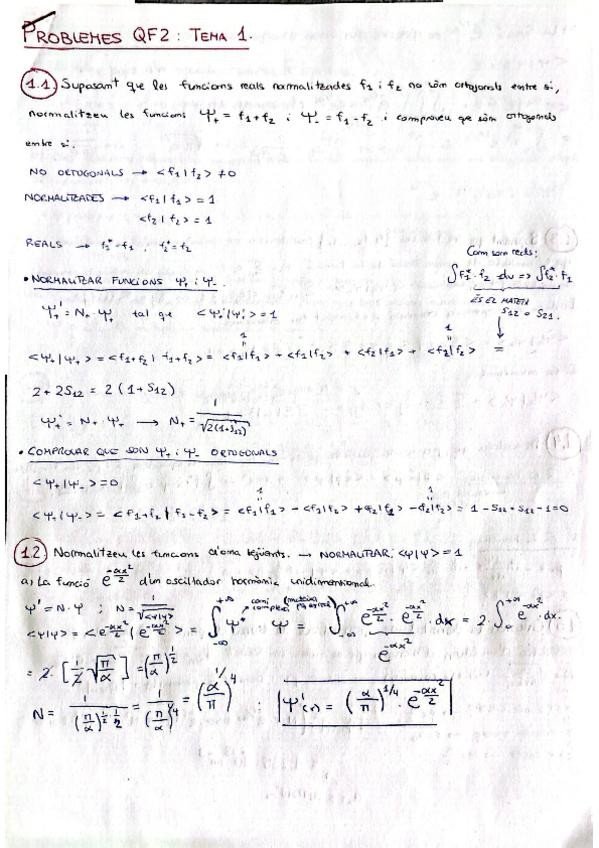 PROBLEMES QF2: TEMA 1.
1.1 Suposant que les funcions reals normalitzades f1 i f2 no són ortogonals entre si,
normalitzeu les funcions Ψ+ = f1+f2 i Ψ- = f1-f2 i comproveu que són ortogonals
entre si.
NO ORTOGONALS → <f1|f2> ≠0
NORMALITZADES → <f1|f1> = 1
<f2|f2> = 1
REALS → f1*=f1 , f2*=f2
Com son reals:
∫f1*·f2 dv => ∫f2*·f1
ÉS EL MATEIX
S12 = S21.
• NORMALITZAR FUNCIONS Ψ+ i Ψ-.
Ψ+' = N+ Ψ+ tal que <Ψ+'|Ψ+'> = 1
<Ψ+|Ψ+> = <f1+f2| f1+f2> = <f1|f1> + <f1|f2> + <f2|f1> + <f2|f2> =
1 1
2+2S12 = 2(1+S12)
Ψ+' = N+ · Ψ+ → N+ = 1/√2(1+S12)
• COMPROVAR QUE SON Ψ+ i Ψ- ORTOGONALS
<Ψ+|Ψ-> = 0
1 1
<Ψ+|Ψ-> = <f1+f2| f1-f2> = <f1|f1> - <f1|f2> + <f2|f1> - <f2|f2> = 1 - S12 + S12 - 1 = 0
1.2 Normalitzeu les funcions d'ona següents. → NORMALITZAR: <Ψ|Ψ> = 1
a) La funció e^(-αx²/2) d'un oscil·lador harmònic unidimensional.
Ψ' = N·Ψ ; N = 1/√<Ψ|Ψ>
<Ψ|Ψ> = <e^(-αx²/2)|e^(-αx²/2)> = ∫-∞+∞ Ψ* Ψ = ∫-∞+∞ e^(-αx²/2) · e^(-αx²/2) · dx = 2·∫0+∞ e^(-αx²) · dx.
e^(-αx²)
= 2·[1/2 √(π/α)] = (π/α)^(1/2)
N = 1/(π/α)^(1/2·1/2) = 1/(π/α)^(1/4) = (α/π)^(1/4) ; Ψ'(x) = (α/π)^(1/4) · e^(-αx²/2)